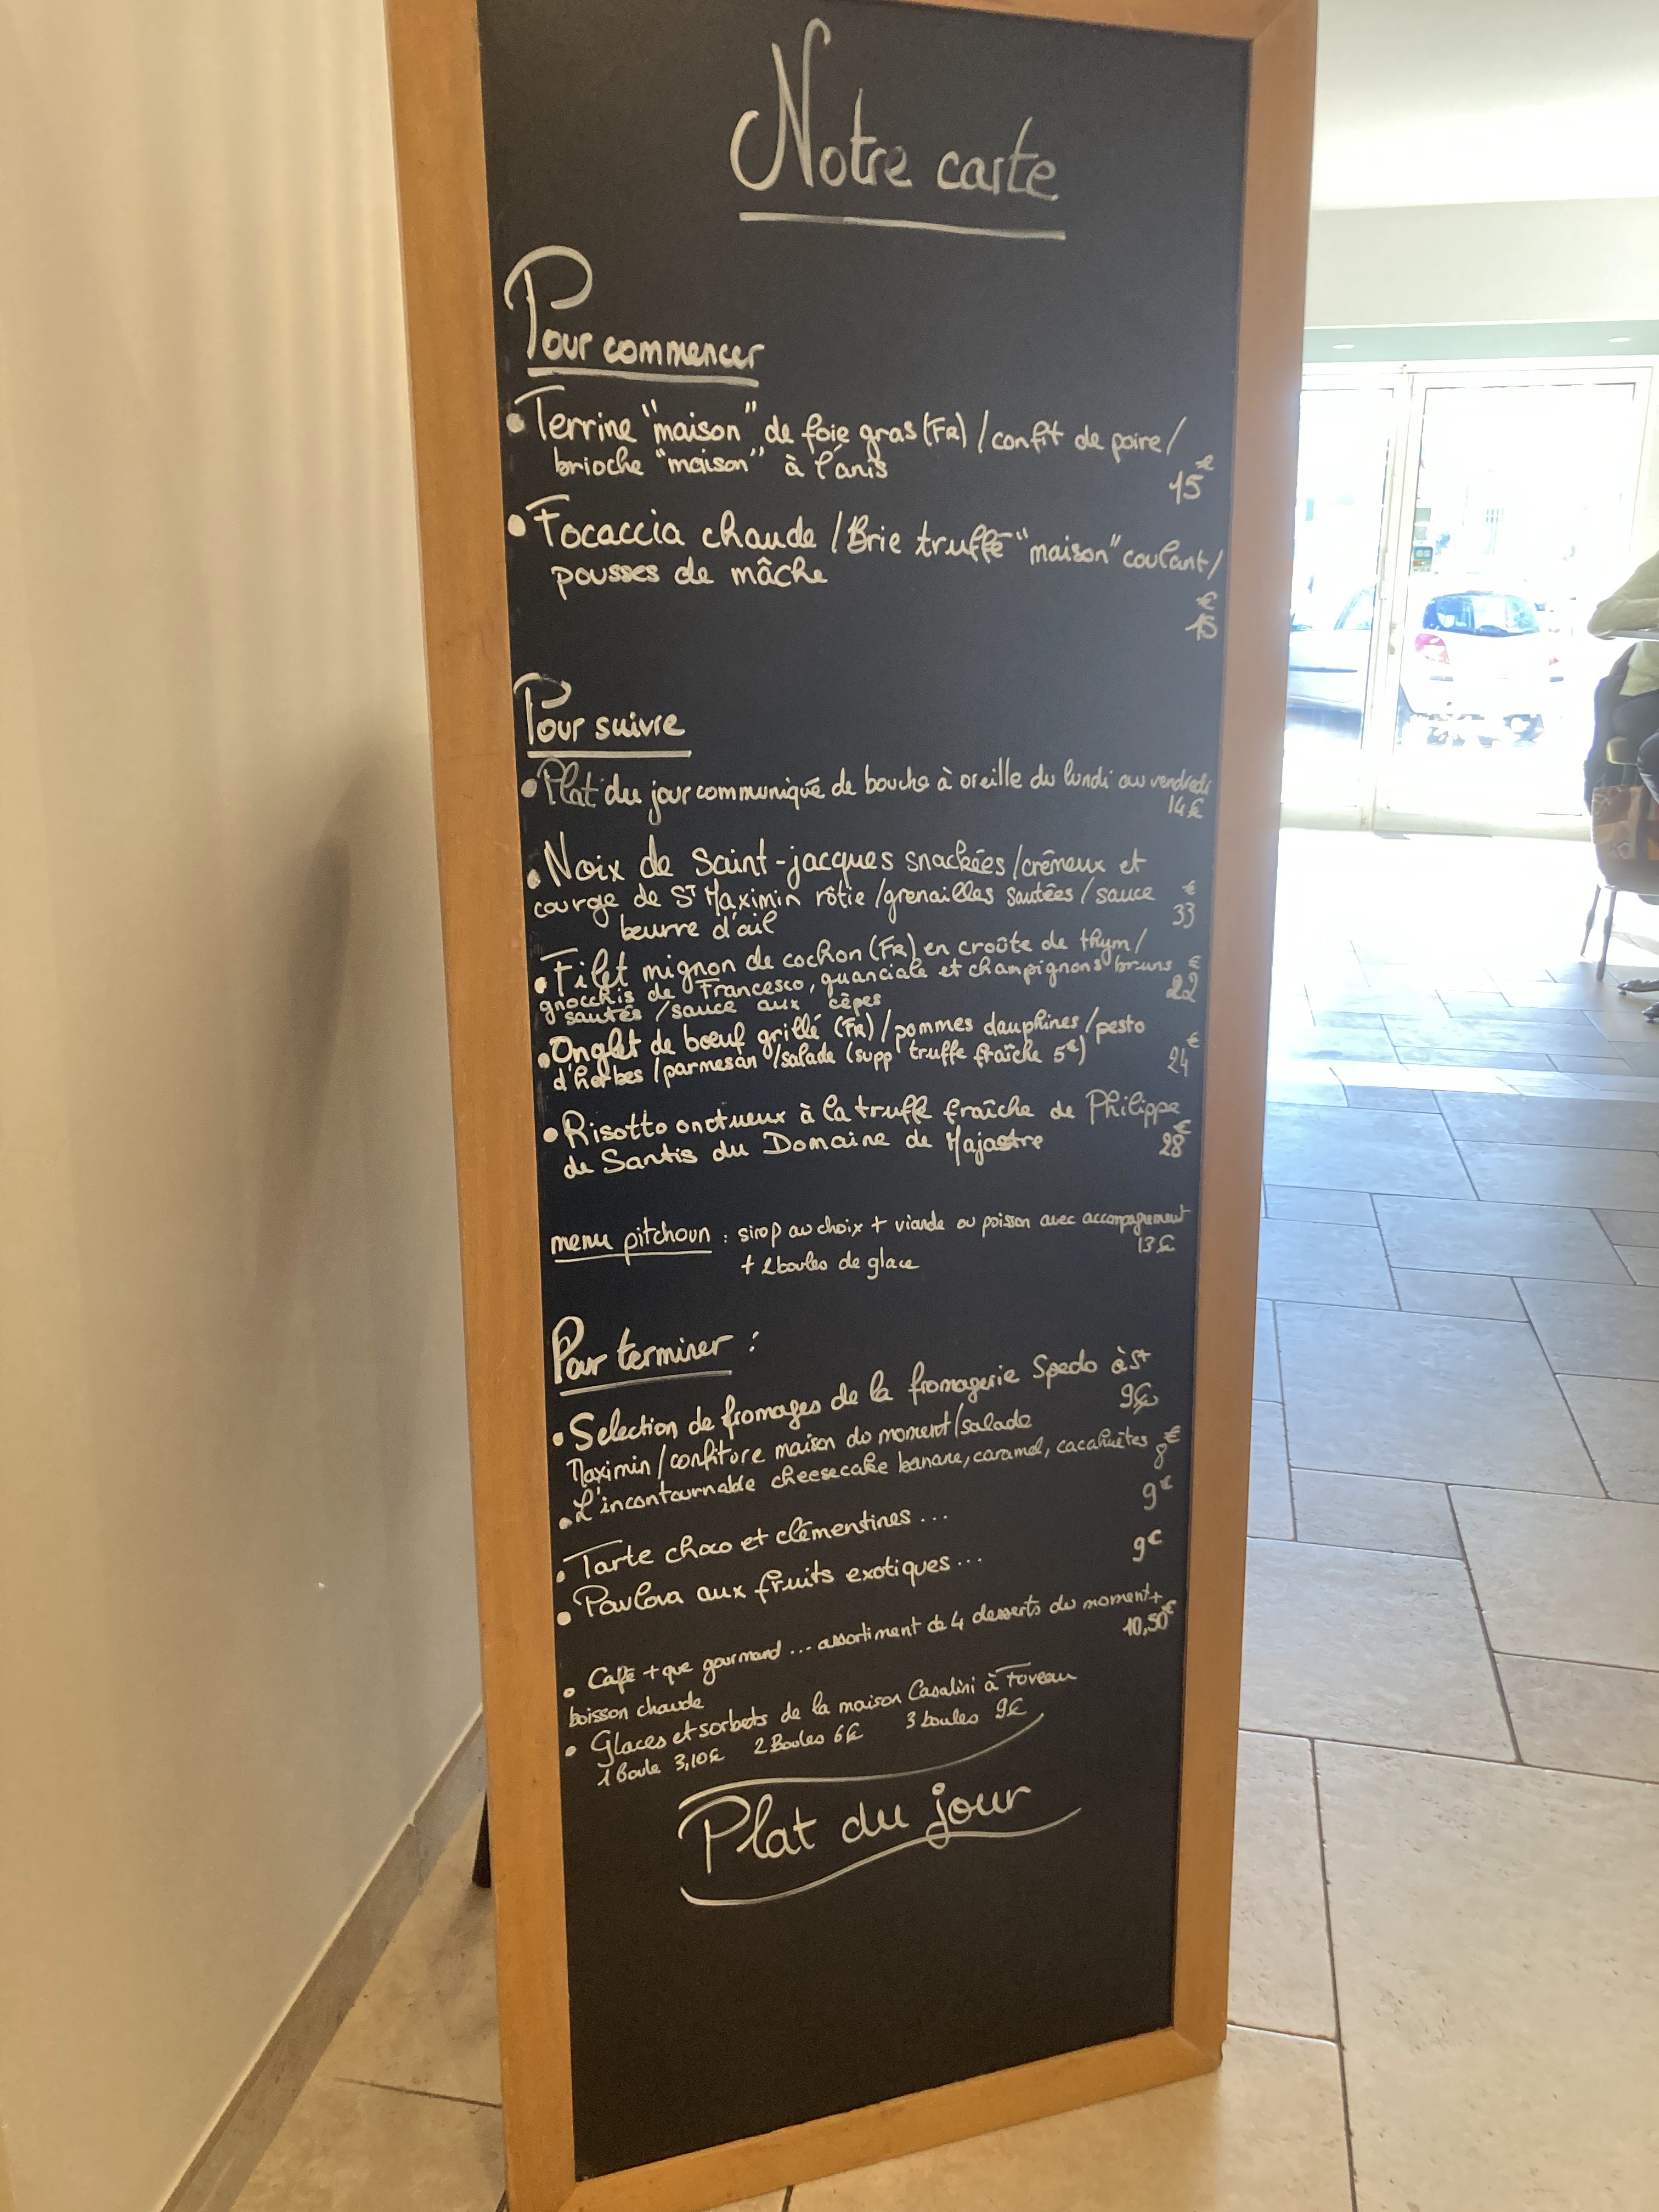 Notre carte
Pour commencer
• Terrine "maison" de foie gras (FR) / confit de poire /
brioche "maison" à l'anis
15€
• Focaccia chaude / Brie truffé "maison" coulant /
pousses de mâche
€
15
Pour suivre
• Plat du jour communiqué de bouche à oreille du lundi au vendredi
14€
• Noix de Saint-jacques snackées / crémeux et
courge de ST Maximin rôtie / grenailles sautées / sauce €
beurre d'ail 33
• Filet mignon de cochon (FR) en croûte de thym /
gnocchis de Francesco, guanciale et champignons bruns €
sautés / sauce aux cèpes 22
• Onglet de bœuf grillé (FR) / pommes dauphines / pesto €
d'herbes / parmesan / salade (supp truffe fraîche 5€) 24
• Risotto onctueux à la truffe fraîche de Philippe €
de Santis du Domaine de Majastre 28
menu pitchoun : sirop au choix + viande ou poisson avec accompagnement
13€
+ 2 boules de glace
Pour terminer :
• Selection de fromages de la fromagerie Spedo à St
Maximin / confiture maison du moment / salade 9€
• L'incontournable cheesecake banane, caramel, cacahuètes 8€
• Tarte choco et clémentines ... 9€
• Pavlova aux fruits exotiques ... 9€
• Café + que gourmand ... assortiment de 4 desserts du moment +
boisson chaude 10,50€
• Glaces et sorbets de la maison Casalini à
1 Boule 3,10€ 2 Boules 6€ 3 boules 9€
Plat du jour